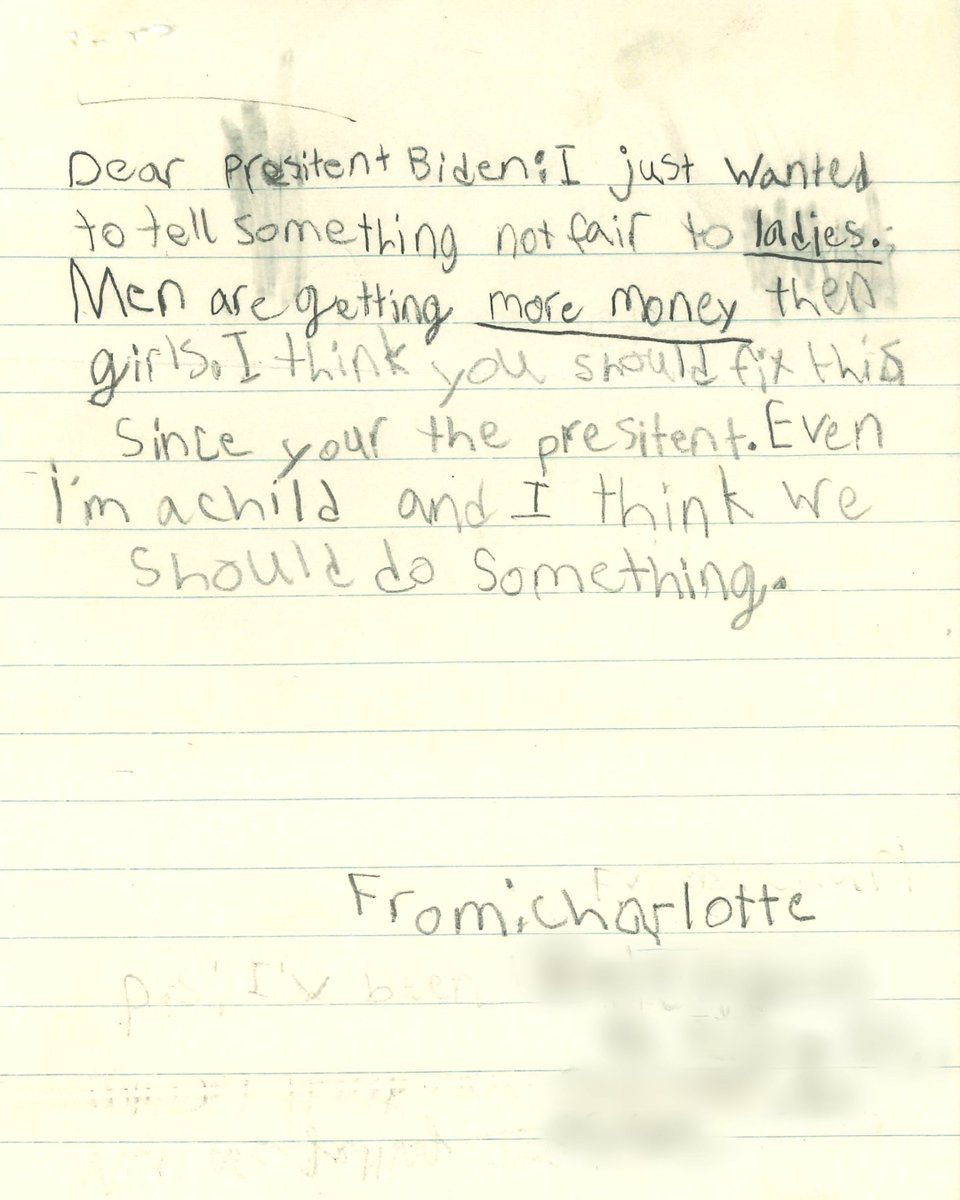 Dear Presitent Biden: I just wanted
to tell something not fair to ladies.
Men are getting more money then
girls. I think you should fix this
since your the presitent. Even
i'm a child and I think we
should do something.
From: charlotte
I'v been